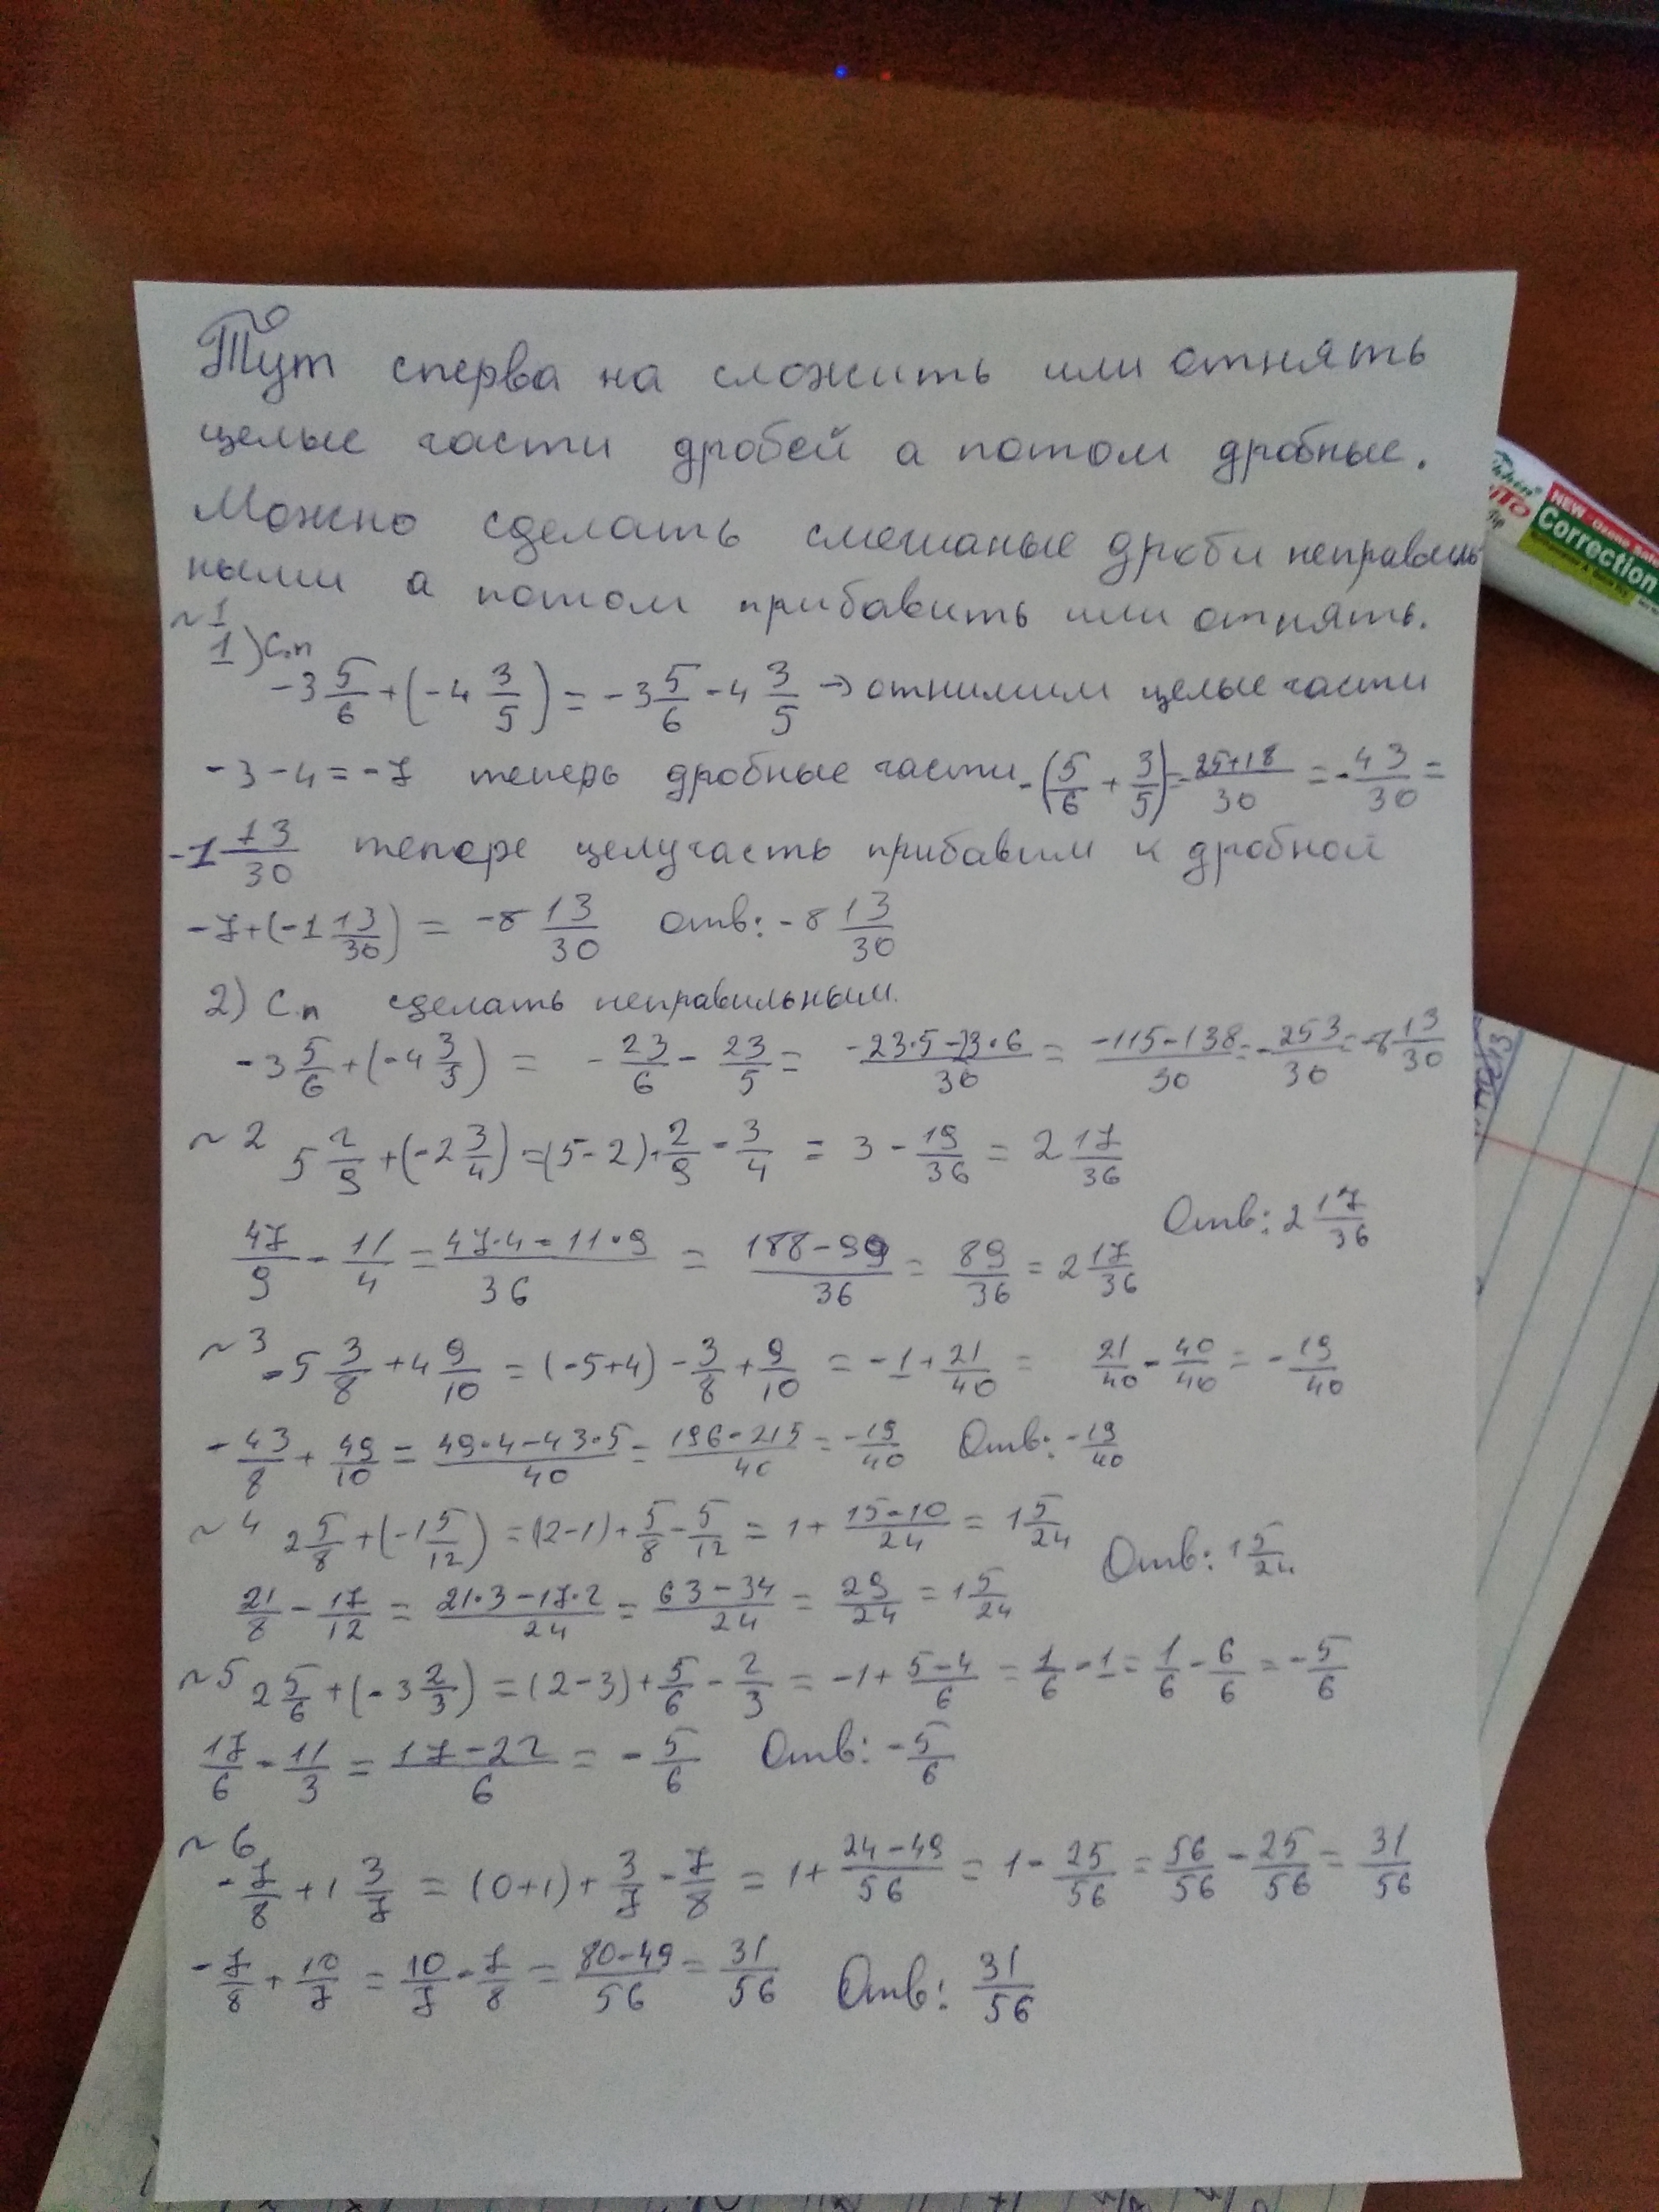 Тут сперва на сложить или отнять
целые части дробей а потом дробные.
Можно сделать смешаные дроби неправиль
ными а потом прибавить или отнять.
~1
1) С.п
-3 5/6 + (-4 3/5) = -3 5/6 - 4 3/5 → отнимим целые части
-3-4=-7 теперь дробные части -(5/6 + 3/5) = 25+18/30 = -43/30 =
-1 13/30 тепере целучасть прибавим к дробной
-7+(-1 13/30) = -8 13/30 Отв: -8 13/30
2) С.п сделать неправильным.
-3 5/6 + (-4 3/5) = -23/6 - 23/5 = -23·5-23·6/30 = -115-138/30 = -253/30 = -8 13/30
~2 5 2/9 + (-2 3/4) = (5-2)+2/9 - 3/4 = 3 - 19/36 = 2 17/36
Отв: 2 17/36
47/9 - 11/4 = 47·4-11·9/36 = 188-99/36 = 89/36 = 2 17/36
~3 -5 3/8 + 4 9/10 = (-5+4) - 3/8 + 9/10 = -1 + 21/40 = 21/40 - 40/40 = -19/40
-43/8 + 49/10 = 49·4-43·5/40 = 196-215/40 = -19/40 Отв: -19/40
~4 2 5/8 + (-1 5/12) = (2-1)+5/8 - 5/12 = 1 + 15-10/24 = 1 5/24
Отв: 1 5/24
21/8 - 17/12 = 21·3-17·2/24 = 63-34/24 = 29/24 = 1 5/24
~5 2 5/6 + (-3 2/3) = (2-3)+5/6 - 2/3 = -1 + 5-4/6 = 1/6 - 1 = 1/6 - 6/6 = -5/6
17/6 - 11/3 = 17-22/6 = -5/6 Отв: -5/6
~6
-7/8 + 1 3/7 = (0+1) + 3/7 - 7/8 = 1 + 24-49/56 = 1 - 25/56 = 56/56 - 25/56 = 31/56
-7/8 + 10/7 = 10/7 - 7/8 = 80-49/56 = 31/56 Отв: 31/56
NEW
Correction